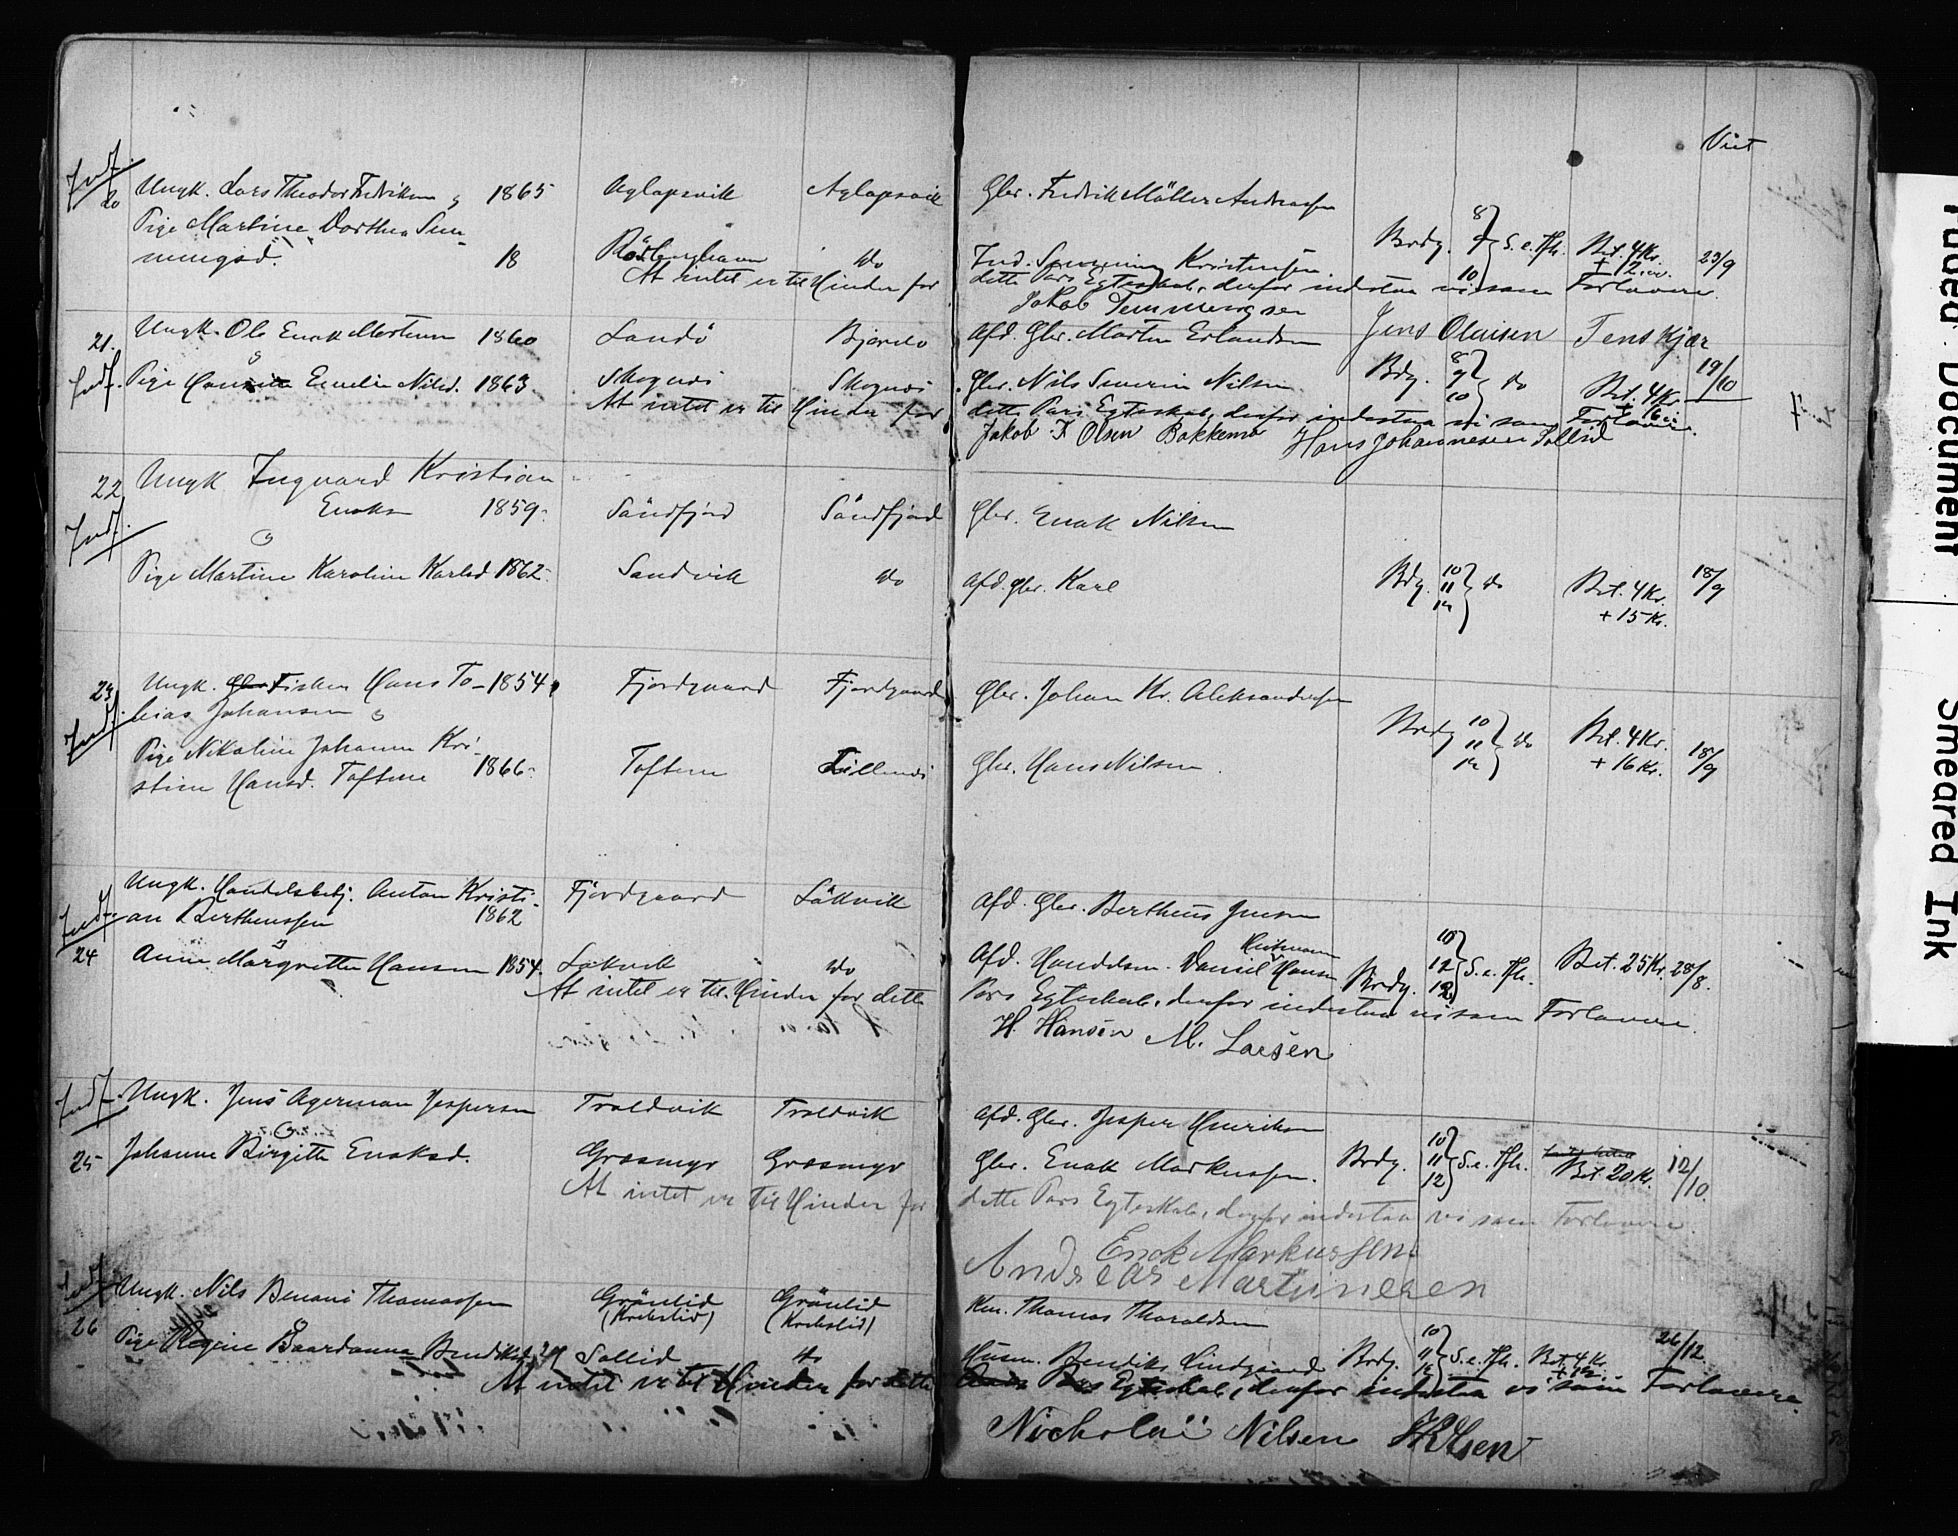 Viet
Indf.
20 Ungk. Lars Theodor Fredriksen & 1865 Aglapsvik Aglapsvik Gbr. Fredrik Møller Andreassen
Pige Martine Dorthea Sem-
mingsd. 18 do Ind. Kristensen. Brdg. 8 9 10 } S. e. Bet. 4 Kr. 23/9
At intet er til Hinder for dette Pars Egteskab, derfor indestaa vi som Forlovere.
Jakob Temmengsen Jens Olaisen Jens Kjær
21. Ungk. Ole Enok Martinsen 1860 Sandö Bjorelv Afd. Gbr. Martin Erlandsen
&
Indf. Pige Emelie Nilsd. 1863 Skognes Skognes Gbr. Nils Severin Nilsen Brdg. 8 9 10 } do Bet. 4 Kr. 19/10
At intet er til Hinder for dette Pars Egteskab, derfor indestaa vi som Forlovere.
Jakob K Olsen Bakkemo Hans Johannesen Sollid
22 Ungk. Ingvard Kristian
Indf. Enoksen 1859. Sandfjord Sandfjord Gbr. Enok Nilsen
&
Pige Martine Karoline Karlsd 1862. Sandvik do Afd. Gbr. Karl Brdg. 10 11 12 } do Bet. 4 Kr. 18/9
+ 15 Kr.
23 Ungk. Fisker Hans To- 1854 Fjordgaard Fjordgaard Gbr. Johan Kr. Aleksandersen
Indf. bias Johansen &
Pige Nikoline Johanne Kri-
stine Hansd. Toftene 1866. Toftene Gbr. Hans Nilsen. Brdg. 10 11 12 } do Bet. 4 Kr. 18/9
+ 16 Kr.
Ungk. Handelsbetj. Anton Kristi- Fjordgaard Lökvik Afd. Gbr. Bertheus Jensen
Indf. an Bertheussen 1862
&
24 Anne Margrethe Hansen 1854. Lökvik do Afd. Handelsm. Daniel Hansen Brdg. 10 12 } S. e. Bet. 25 Kr. 28/8.
At intet er til Hinder for dette Pars Egteskab, derfor indestaa vi som Forlovere.
H Hansen M. Larsen
Indf. Ungk. Jens Agerman Jespersen Troldvik Troldvik Afd. Gbr. Jesper Henriksen
&
25 Johanne Birgitte Enoksd. Græsmyr Græsmyr Gbr. Enok Markussen. Brdg. 10 11 12 } S. e. Bet. 20 Kr. 12/10.
At intet er til Hinder for dette Pars Egteskab, derfor indestaa vi som Forlovere.
Enok Markussen
Andreas Martinesen
Indf. Ungk. Nils Benoni Thomassen Grönlid Grönlid Thomas Thoraldsen
26 (Krokslid) (Krokslid)
Pige Regine Baardanna Bendiksd. Sollid do Husm. Bendiks Lindgaard Brdg. 10 11 12 } S. e. Bet. 4 Kr. 26/12
At intet er til Hinder for dette Pars Egteskab, derfor indestaa vi som Forlovere.
Nicholai Nilsen
Faded Document
Smeared Ink